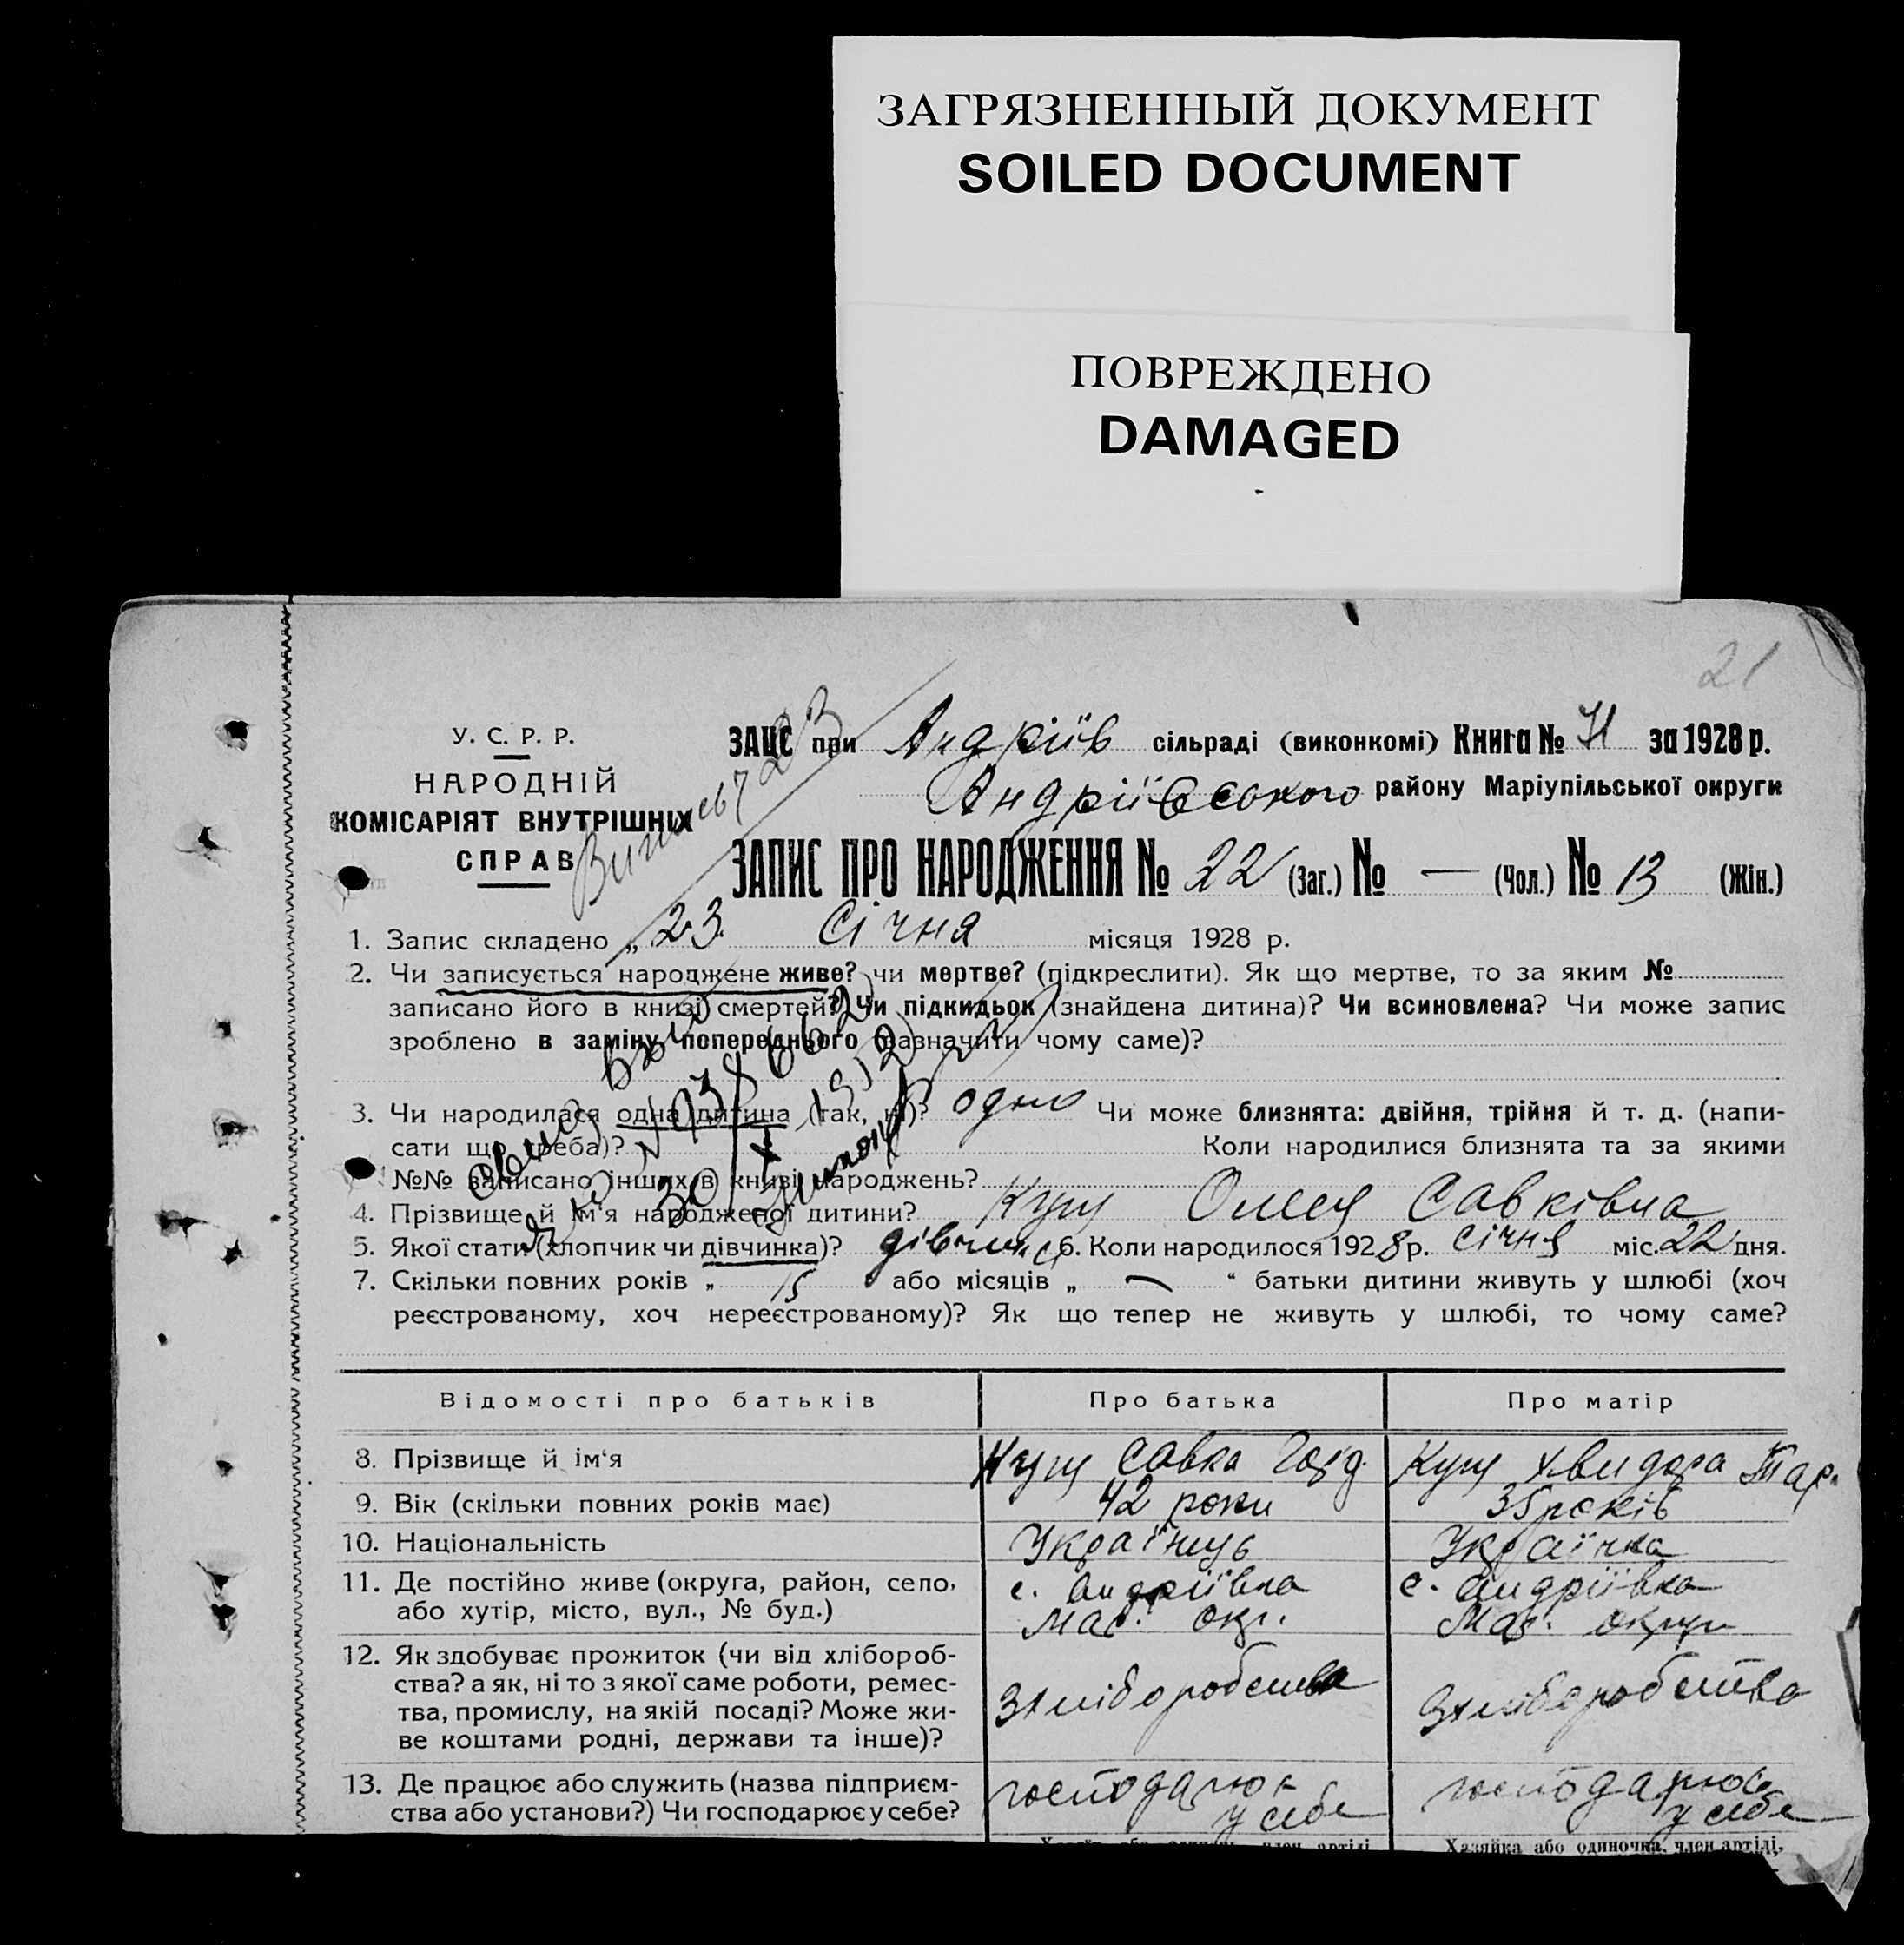 ЗАГРЯЗНЕННЫЙ ДОКУМЕНТ
SOILED DOCUMENT
ПОВРЕЖДЕНО
DAMAGED
21
У. С. Р. Р.
НАРОДНІЙ
КОМІСАРІЯТ ВНУТРІШНІХ
СПРАВ
ЗАЦС при Андріїв сільраді (виконкомі) Книга № за 1928 р.
Андріївського району Маріупільської округи
ЗАПИС ПРО НАРОДЖЕННЯ № 22 (Заг.) № — (Чол.) № 13 (Жін.)
1. Запис складено „ 23 Січня місяця 1928 р.
2. Чи записується народжене живе? чи мертве? (підкреслити). Як що мертве, то за яким №
записано його в книзі смертей? Чи підкидьок (знайдена дитина)? Чи всиновлена? Чи може запис
зроблено в заміну попереднього (зазначити чому саме)?
3. Чи народилася одна дитина (так, ні)? одно Чи може близнята: двійня, трійня й т. д. (напи-
сати що треба)? Коли народилися близнята та за якими
№№ записано інших в книзі народжень?
4. Прізвище й ім'я народженої дитини? Кущ Олеся Савківна
5. Якої стати (хлопчик чи дівчинка)? дівчинка 6. Коли народилося 1928 р. січня міс. 22 дня.
7. Скільки повних років „ 15 або місяців „ — “ батьки дитини живуть у шлюбі (хоч
реєстрованому, хоч нереєстрованому)? Як що тепер не живуть у шлюбі, то чому саме?
Відомості про батьків Про батька Про матір
8. Прізвище й ім‘я Кущ Савка Кущ Хвидора
9. Вік (скільки повних років має) 42 роки 35 років
10. Національність Українець Українка
11. Де постійно живе (округа, район, село, с. Андріївка с. Андріївка
або хутір, місто, вул., № буд.) Мар. окр. Мар. округи
12. Як здобуває прожиток (чи від хлібороб-
ства? а як, ні то з якої саме роботи, ремес- Зхліборобства Зхліборобства
тва, промислу, на якій посаді? Може жи-
ве коштами родні, держави та інше)?
13. Де працює або служить (назва підприєм- господарює господарює
ства або установи?) Чи господарює у себе? у себе у себе
Хазяйка або одиночка, член артілі,